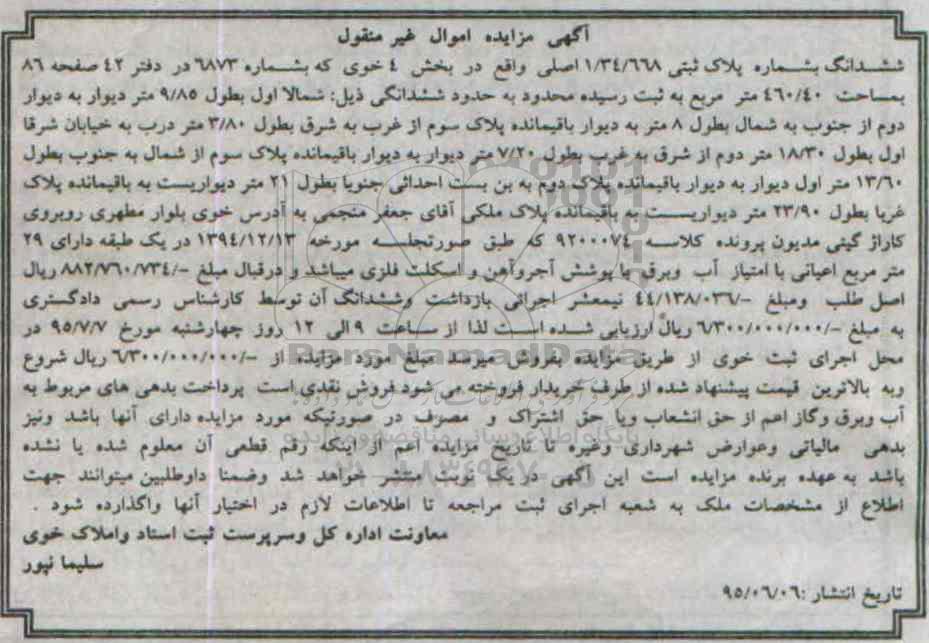 آگهی مزایده اموال غیر منقول
ششدانگ بشماره پلاک ثبتی ۱/۳۴/۶۶۸ اصلی واقع در بخش ۴ خوی که بشماره ۶۸۷۳ در دفتر ۴۲ صفحه ۸۶
بمساحت ۴۶۰/۴۰ متر مربع به ثبت رسیده محدود به حدود ششدانگی ذیل: شمالا اول بطول ۹/۸۵ متر دیوار به دیوار
دوم از جنوب به شمال بطول ۸ متر به دیوار باقیمانده پلاک سوم از غرب به شرق بطول ۳/۸۰ متر درب به خیابان شرقا
اول بطول ۱۸/۳۰ متر دوم از شرق به غرب بطول ۷/۲۰ متر دیوار به دیوار باقیمانده پلاک سوم از شمال به جنوب بطول
۱۳/۶۰ متر اول دیوار به دیوار باقیمانده پلاک دوم به بن بست احداثی جنوبا بطول ۲۱ متر دیواریست به باقیمانده پلاک
غربا بطول ۲۳/۹۰ متر دیواریست به باقیمانده پلاک ملکی آقای جعفر منجمی به آدرس خوی بلوار مطهری روبروی
کاراژ گیتی مدیون پرونده کلاسه ۹۲۰۰۰۷۴ که طبق صورتجلسه مورخه ۱۳۹۴/۱۲/۱۳ در یک طبقه دارای ۲۹
متر مربع اعیانی با امتیاز آب وبرق با پوشش آجروآهن و اسکلت فلزی میباشد و درقبال مبلغ -/۸۸۲/۷۶۰/۷۳۴ ریال
اصل طلب ومبلغ -/۴۴/۱۳۸/۰۳۶ نیمعشر اجرائی بازداشت وششدانگ آن توسط کارشناس رسمی دادگستری
به مبلغ -/۶/۳۰۰/۰۰۰/۰۰۰ ریال ارزیابی شده است لذا از ساعت ۹ الی ۱۲ روز چهارشنبه مورخ ۹۵/۷/۷ در
محل اجرای ثبت خوی از طریق مزایده بفروش میرسد مبلغ مورد مزایده از -/۶/۳۰۰/۰۰۰/۰۰۰ ریال شروع
وبه بالاترین قیمت پیشنهاد شده از طرف خریدار فروخته می شود فروش نقدی است پرداخت بدهی های مربوط به
آب وبرق وگاز اعم از حق انشعاب ویا حق اشتراک و مصرف در صورتیکه مورد مزایده دارای آنها باشد ونیز
بدهی مالیاتی وعوارض شهرداری وغیره تا تاریخ مزایده اعم از اینکه رقم قطعی آن معلوم شده یا نشده
باشد به عهده برنده مزایده است این آگهی در یک نوبت منتشر خواهد شد وضمنا داوطلبین میتوانند جهت
اطلاع از مشخصات ملک به شعبه اجرای ثبت مراجعه تا اطلاعات لازم در اختیار آنها واگذارده شود .
معاونت اداره کل وسرپرست ثبت اسناد واملاک خوی
سلیما نپور
تاریخ انتشار :۹۵/۰۶/۰۶
ParsNamadData